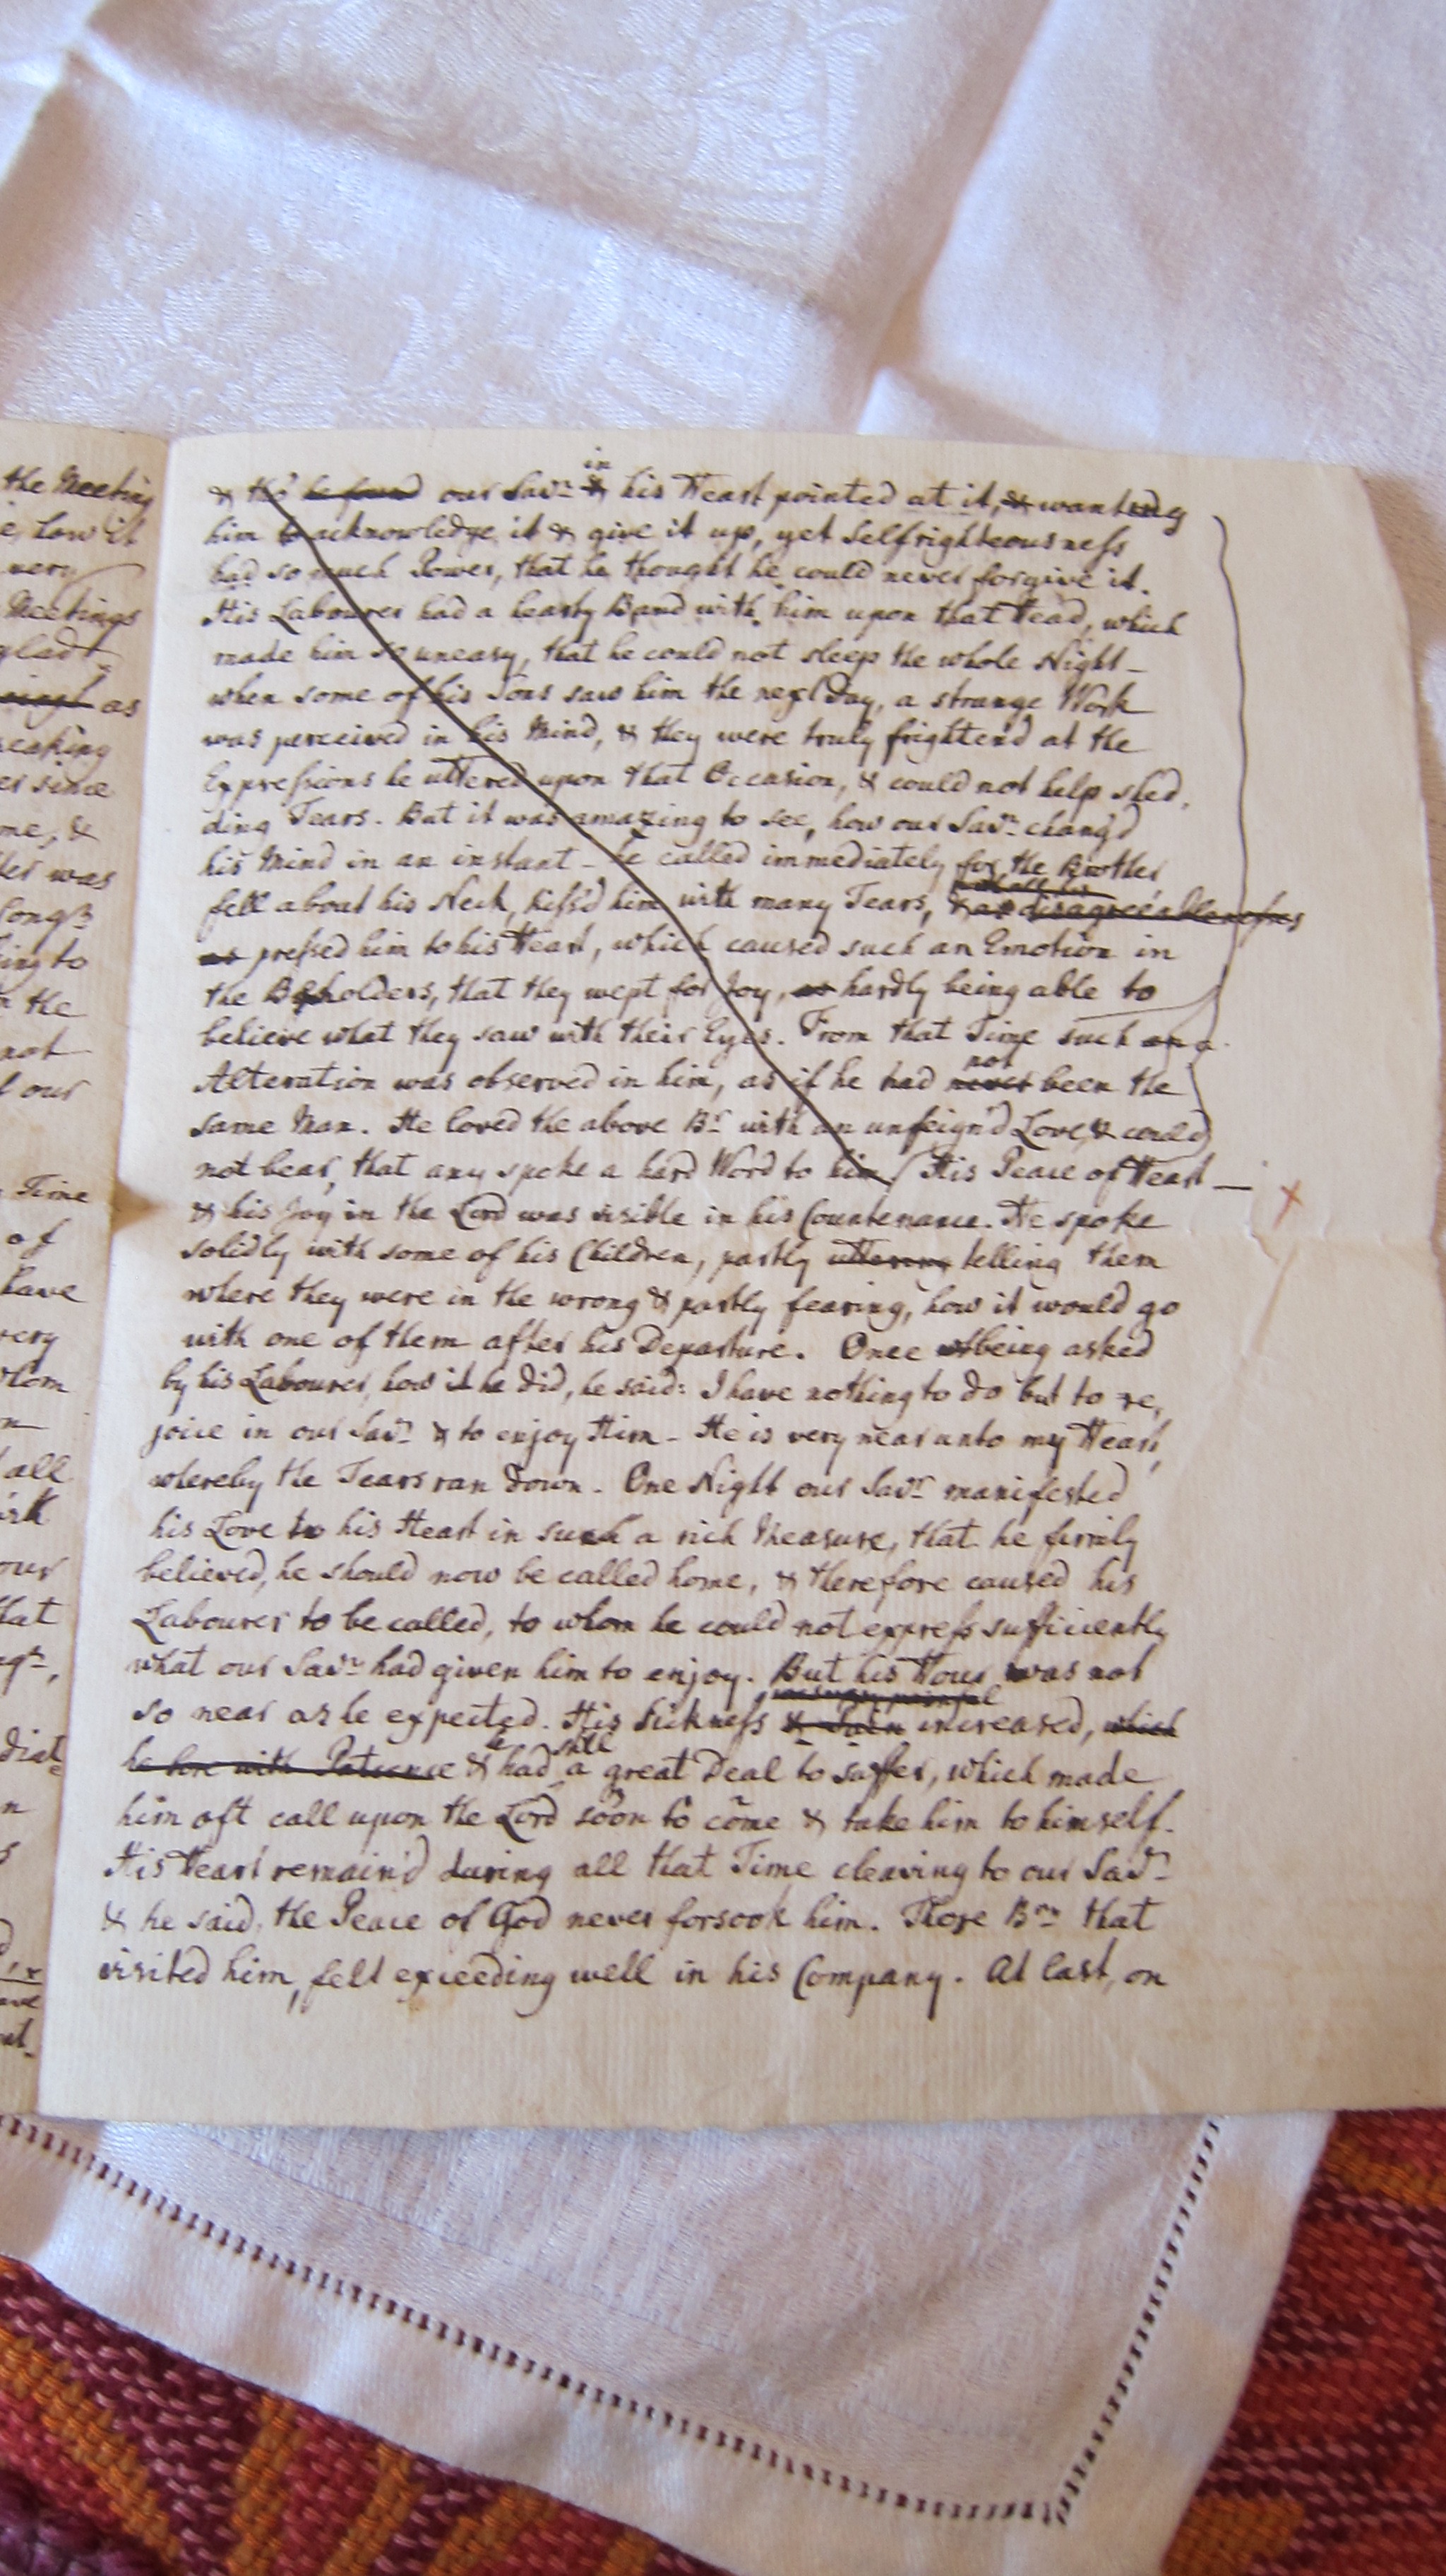 the Meeting
e, how it
very
Meetings
glad
as
eaking
er since
me, &
der was
Song3
ing to
n the
not
l our
Time
of
have
very
whom
n
all
ork
our
that
diate
n
s
& tho' he found our Savr in & his Heart pointed at it, & wanting
him to acknowledge it & give it up, yet Selfrighteousness
had so much Power, that he thought he could never forgive it.
His Labourer had a hearty Band with him upon that Head, which
made him so uneasy, that he could not sleep the whole Night —
when some of his Sons saw him the next Day, a strange Work
was perceived in his Mind, & they were truly frightend at the
Expressions he uttered upon that Occasion, & could not help shed,
ding Tears. But it was amazing to see, how our Savr chang'd
his Mind in an instant - he called immediately for the Brother,
fell about his Neck, kiss'd him with many Tears, & as disagreeableness
as pressed him to his Heart, which caused such an Emotion in
the Beholders, that they wept for Joy, as hardly being able to
believe what they saw with their Eyes. From that Time such an a
Alteration was observed in him, as if he had never not been the
same Man. He loved the above Br with an unfeign'd Love, & could
not bear, that any spoke a hard Word to him / His Peace of Heart —
& his Joy in the Lord was visible in his Countenance. He spoke
solidly with some of his Children, partly uttering telling them
where they were in the wrong & partly fearing, how it would go
with one of them after his Departure. Once being asked
by his Labourer, how it he did, he said: I have nothing to do but to re,
joice in our Savr & to enjoy Him - He is very near unto my Heart,
whereby the Tears ran down. One Night our Savr manifested
his Love to his Heart in such a rich Measure, that he firmly
believed, he should now be called home, & therefore caused his
Labourer to be called, to whom he could not express sufficiently
what our Savr had given him to enjoy. But his Hour was not
so near as he expected. His Sickness & Pain increased, which
he bore with Patience & he had still a great Deal to suffer, which made
him oft call upon the Lord soon to come & take him to himself.
His Heart remain'd during all that Time cleaving to our Savr
& he said, the Peace of God never forsook him. Those Brn that
visited him, felt exceeding well in his Company. At last, on